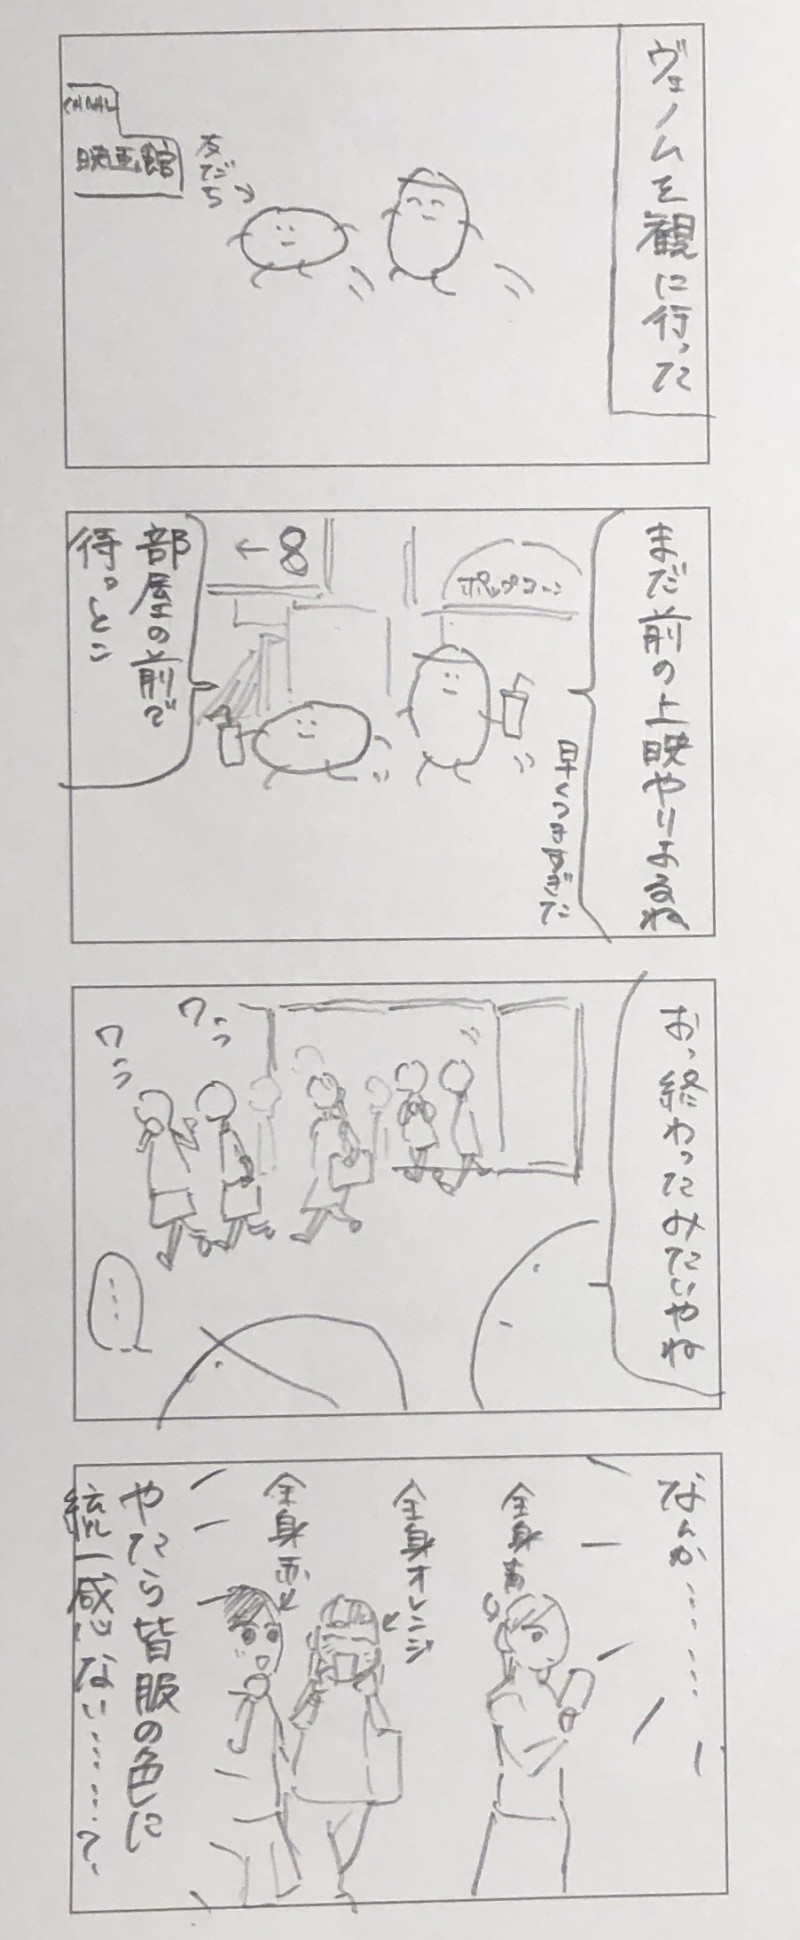 ヴェノムを観に行った
友だち
映画館
まだ前の上映やりよるね
早くつきすぎた
ポップコーン
←8
部屋の前で
待っとこ
おっ終わったみたいやね
ワッ
ワッ
……
なんか………
全身青
全身オレンジ
全身赤
やたら皆服の色に
統一感ない……？